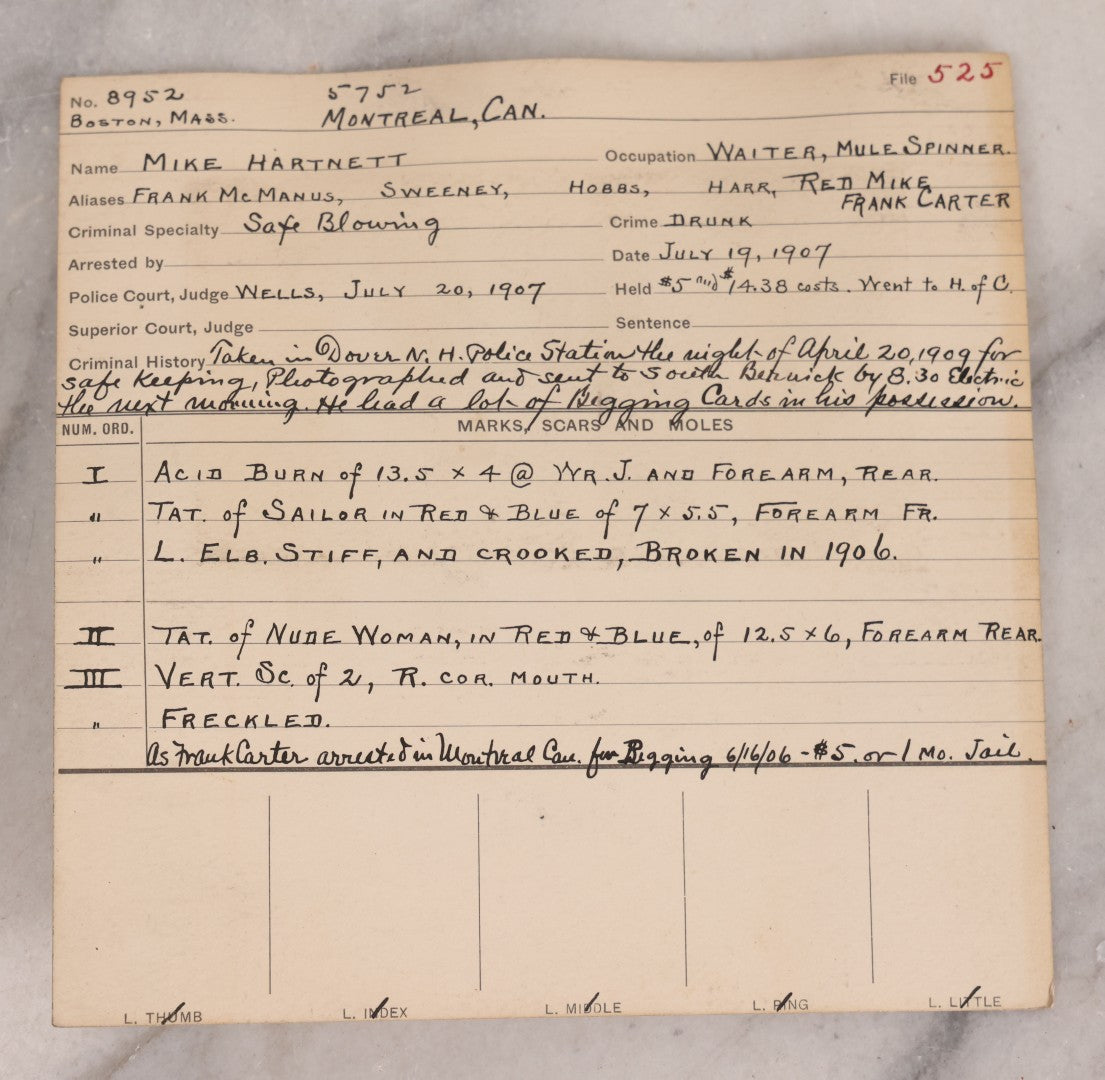 No. 8952 5752 File 525
BOSTON, MASS. MONTREAL, CAN.
Name MIKE HARTNETT Occupation WAITER, MULE SPINNER.
Aliases FRANK MCMANUS, SWEENEY, HOBBS, HARR, RED MIKE
FRANK CARTER
Criminal Specialty Safe Blowing Crime DRUNK
Arrested by Date JULY 19, 1907
Police Court, Judge WELLS, JULY 20, 1907 Held $5 and $14.38 costs. Went to H. of C.
Superior Court, Judge Sentence
Criminal History Taken in Dover N. H. Police Station the night of April 20, 1909 for
safe keeping, Photographed and sent to South Berwick by 8.30 Electric
the next morning. He had a lot of Begging Cards in his possession.
NUM. ORD. MARKS, SCARS AND MOLES
I ACID BURN of 13.5 x 4 @ WR. J. AND FOREARM, REAR.
" TAT. of SAILOR IN RED & BLUE of 7 x 5.5, FOREARM FR.
" L. ELB. STIFF, AND CROOKED, BROKEN IN 1906.
II TAT. of NUDE WOMAN, IN RED & BLUE, of 12.5 x 6, FOREARM REAR.
III VERT. Sc. of 2, R. COR. MOUTH.
" FRECKLED.
As Frank Carter arrested in Montreal Can. for Begging 6/16/06 - $5. or 1 Mo. Jail.
L. THUMB L. INDEX L. MIDDLE L. RING L. LITTLE